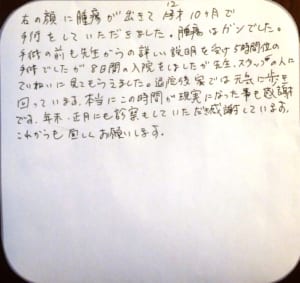 右の顔に腫瘍が出きて12才10ヶ月で
手術をしていただきました。腫瘍はガンでした。
手術の前も先生からの詳しい説明を受け5時間位の
手術でしたが8日間の入院をしましたが先生、スタッフの人に
ていねいに見てもらえました。退院後家では元気に歩き
回っています。本当にこの時間が現実になった事も感謝
です。年末・正月にも診察もしていただき感謝しています。
これからも宜しくお願いします。